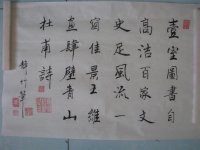 壹室圖書自
高潔百家文
史足風流一
窗佳景王維
畫肆壁青山
杜甫詩